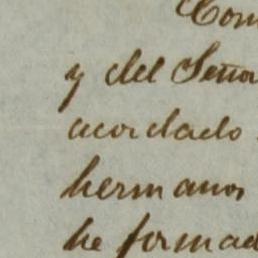 Com
y del Señor
acordado
hermanos
he formad